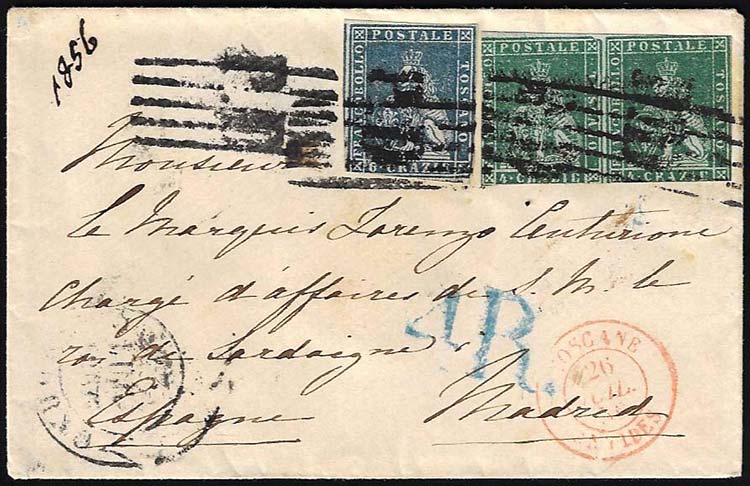 1856
POSTALE
FRANCOBOLLO
TOSCANO
6 CRAZIE
POSTALE
TOSCANO
4 CRAZIE
POSTALE
TOSCANO
4 CRAZIE
Monsieur
Le Marquis Lorenzo Centurione
Chargé d'affaires de S. M. le
roi de Sardaigne
Espagne Madrid
TOSCANE
26
JUIL.